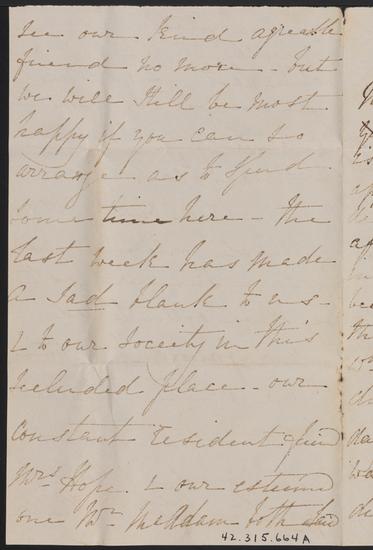 see our kind agreable
friend no more - but
we will still be most
happy if you can so
arrange as to spend
some time here - the
last week has made
a sad blank to us -
& to our soceity in this
secluded place - our
constant resident friend
Mrs Hope - & our esteemed
one Mr McAdam both
42.315.664A